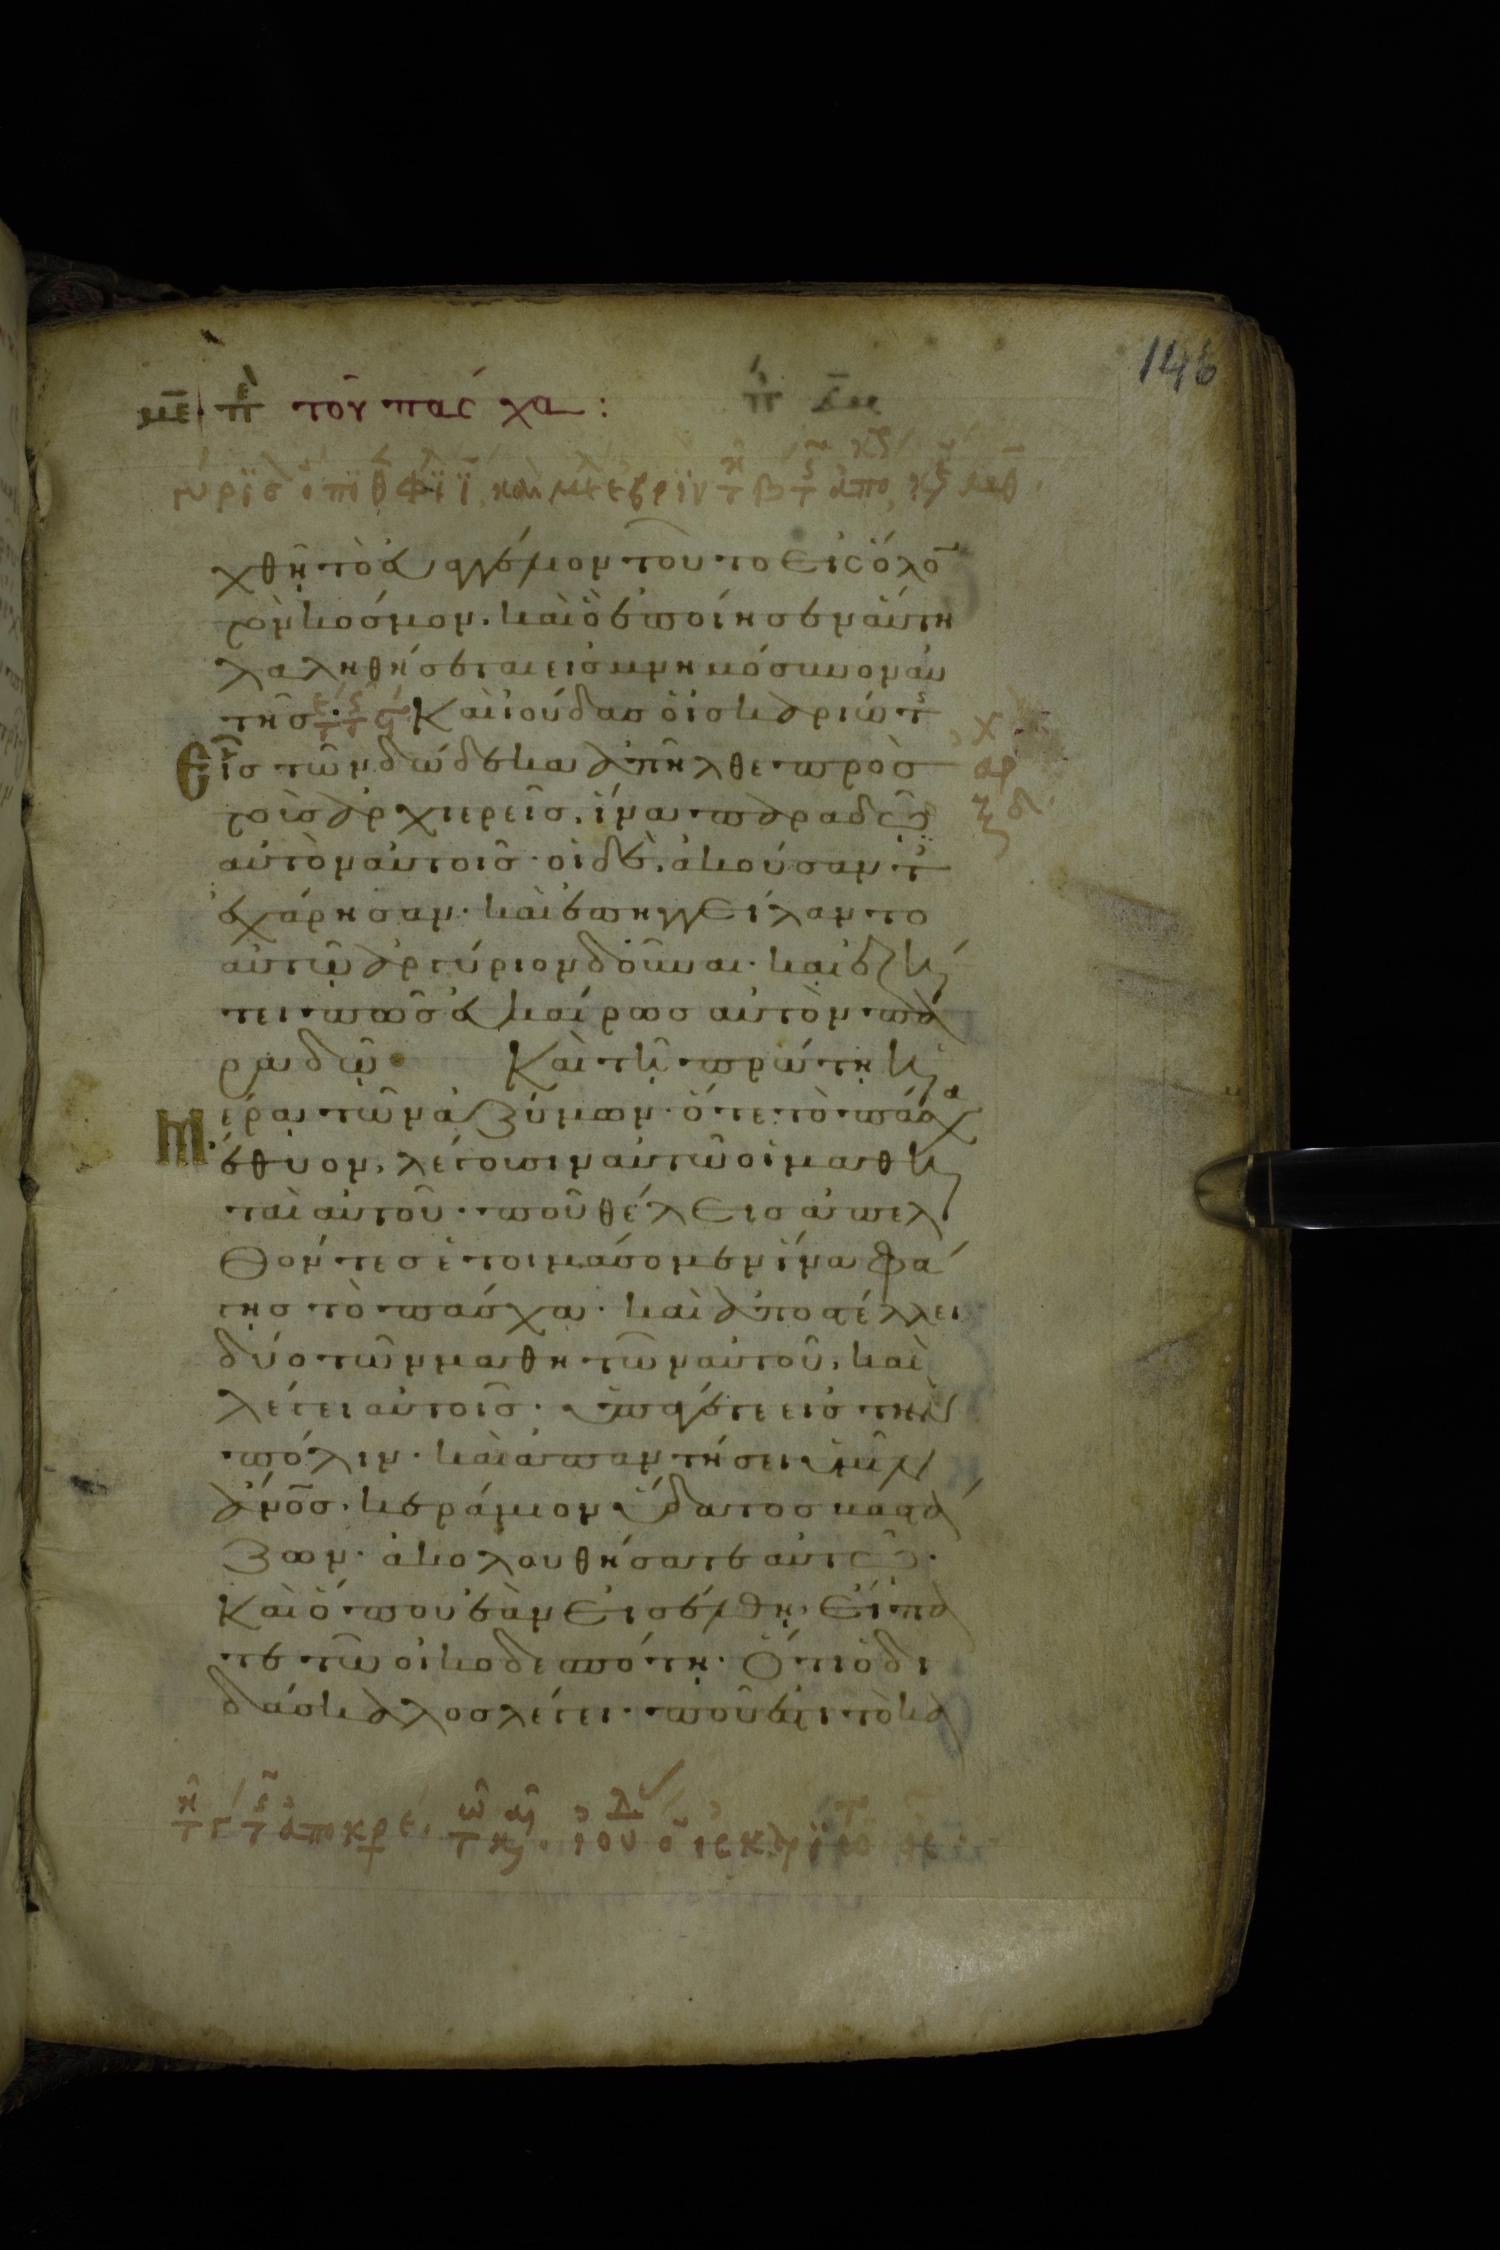 146
με πε του πασχα:
χθῆ τὸ εὐαγγέλιον τοῦτο εἰς ὅλο
τὸν κόσμον. καὶ ὃ ἐποίησεν αὕτη
λαληθήσεται εἰς μνημόσυνον αὐ
τῆσ. Καὶ ἰούδασ ὁ ἰσκαριώτης
εἷσ τῶν δώδεκα ἀπῆλθε πρὸσ
τοὺσ ἀρχιερεῖσ, ἵνα παραδῶ
αὐτὸν αὐτοῖσ. οἱ δὲ, ἀκούσαντες
ἐχάρησαν. καὶ ἐπηγγείλαντο
αὐτῶ ἀργύριον δοῦναι. καὶ ἐζή
τει πῶσ εὐκαίρωσ αὐτὸν πα
ραδῶ. Καὶ τῆ πρώτη ἡ
μέρα τῶν ἀζύμων. ὅτε τὸ πάσχα
ἔθυον, λέγουσιν αὐτῶ οἱ μαθη
ταὶ αὐτοῦ. ποῦ θέλεισ ἀπελ
θόντεσ ἑτοιμάσομεν ἵνα φά
γησ τὸ πάσχα. καὶ ἀποστέλλει
δύο τῶν μαθητῶν αὐτοῦ, καὶ
λέγει αὐτοῖσ. ὑπάγετε εἰσ τὴν
πόλιν. καὶ ἀπαντήσει ὑμῖν
ἄνοσ. κεράμιον ὕδατοσ βαστά
ζων. ἀκολουθήσατε αὐτῶ.
Καὶ ὅπου ἐὰν εἰσέλθη, εἴπα
τε τῶ οἰκοδεσπότη. Ὅτι ὁ δι
δάσκαλοσ λέγει. ποῦ ἐστι τὸ κα